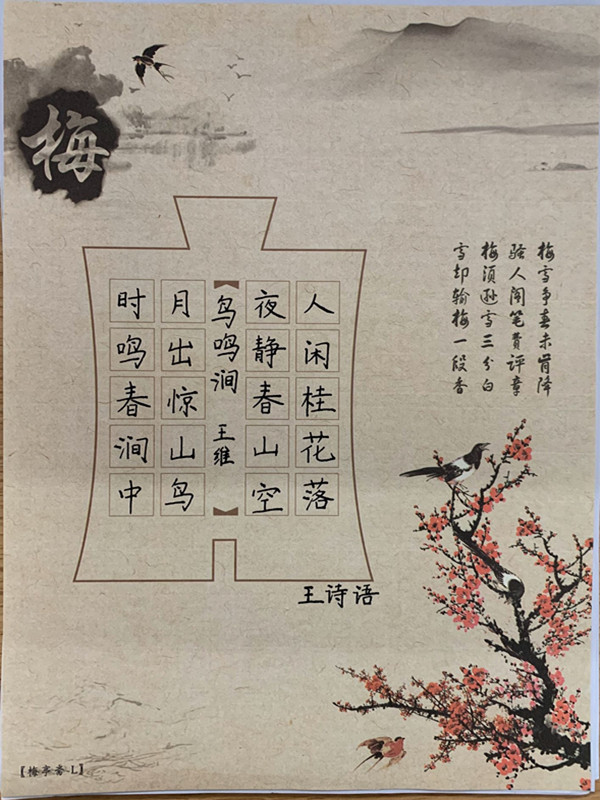 梅
梅雪争春未肯降
骚人阁笔费评章
梅须逊雪三分白
雪却输梅一段香
人闲桂花落
夜静春山空
【鸟鸣涧 王维】
月出惊山鸟
时鸣春涧中
王诗语
【梅亭斋 L】